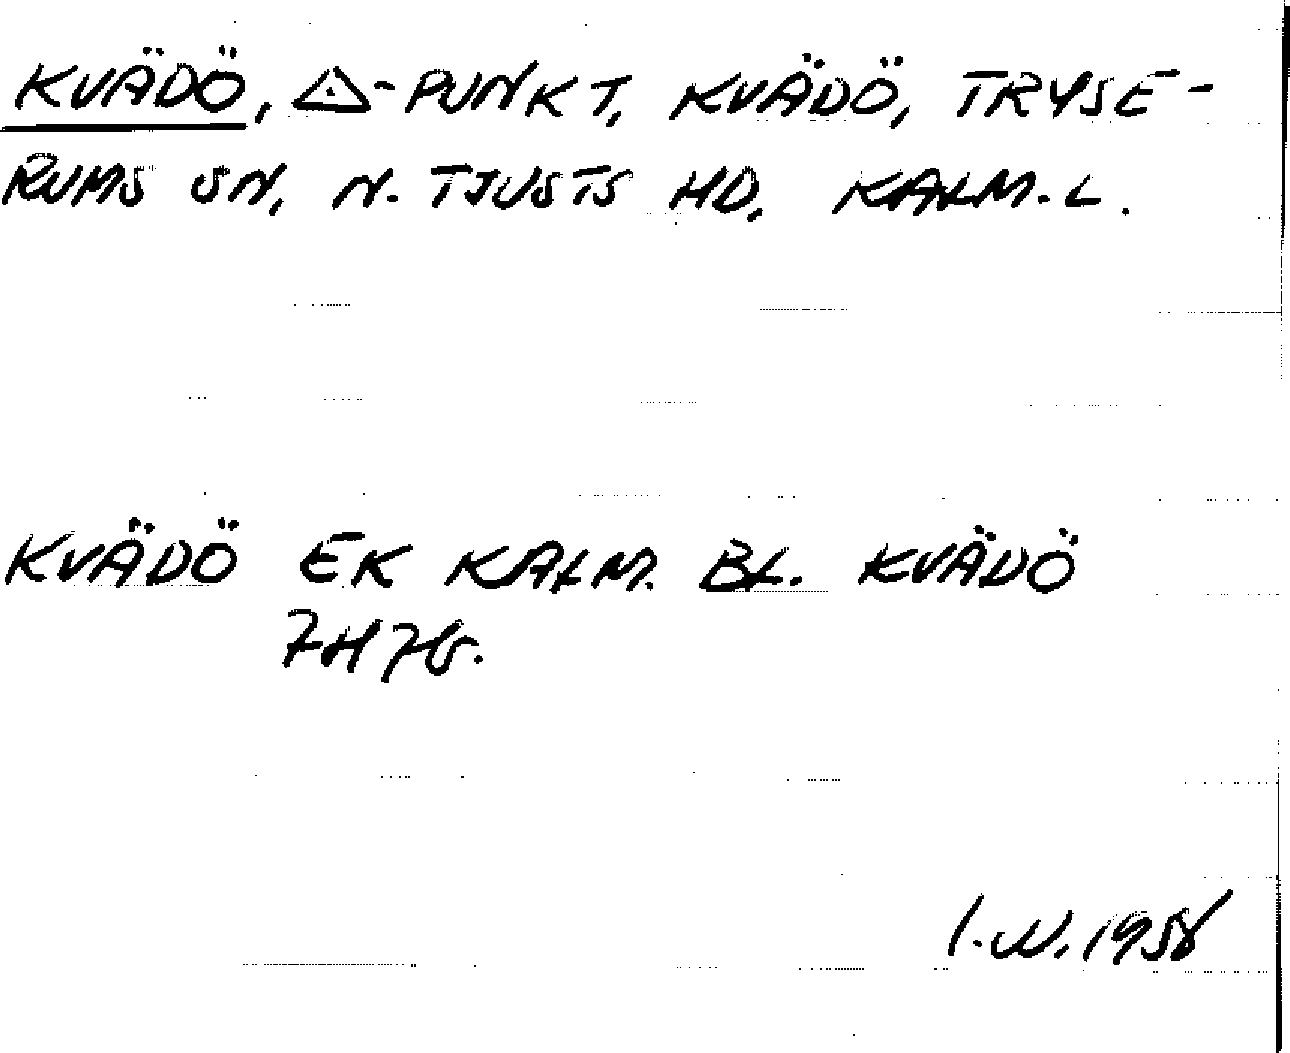 KVÄDÖ, △-PUNKT, KVÄDÖ, TRYSE-
RUMS SN, N. TJUSTS HD, KALM. L.
KVÄDÖ EK KALM. BL. KVÄDÖ
7H7b.
I.W. 1958